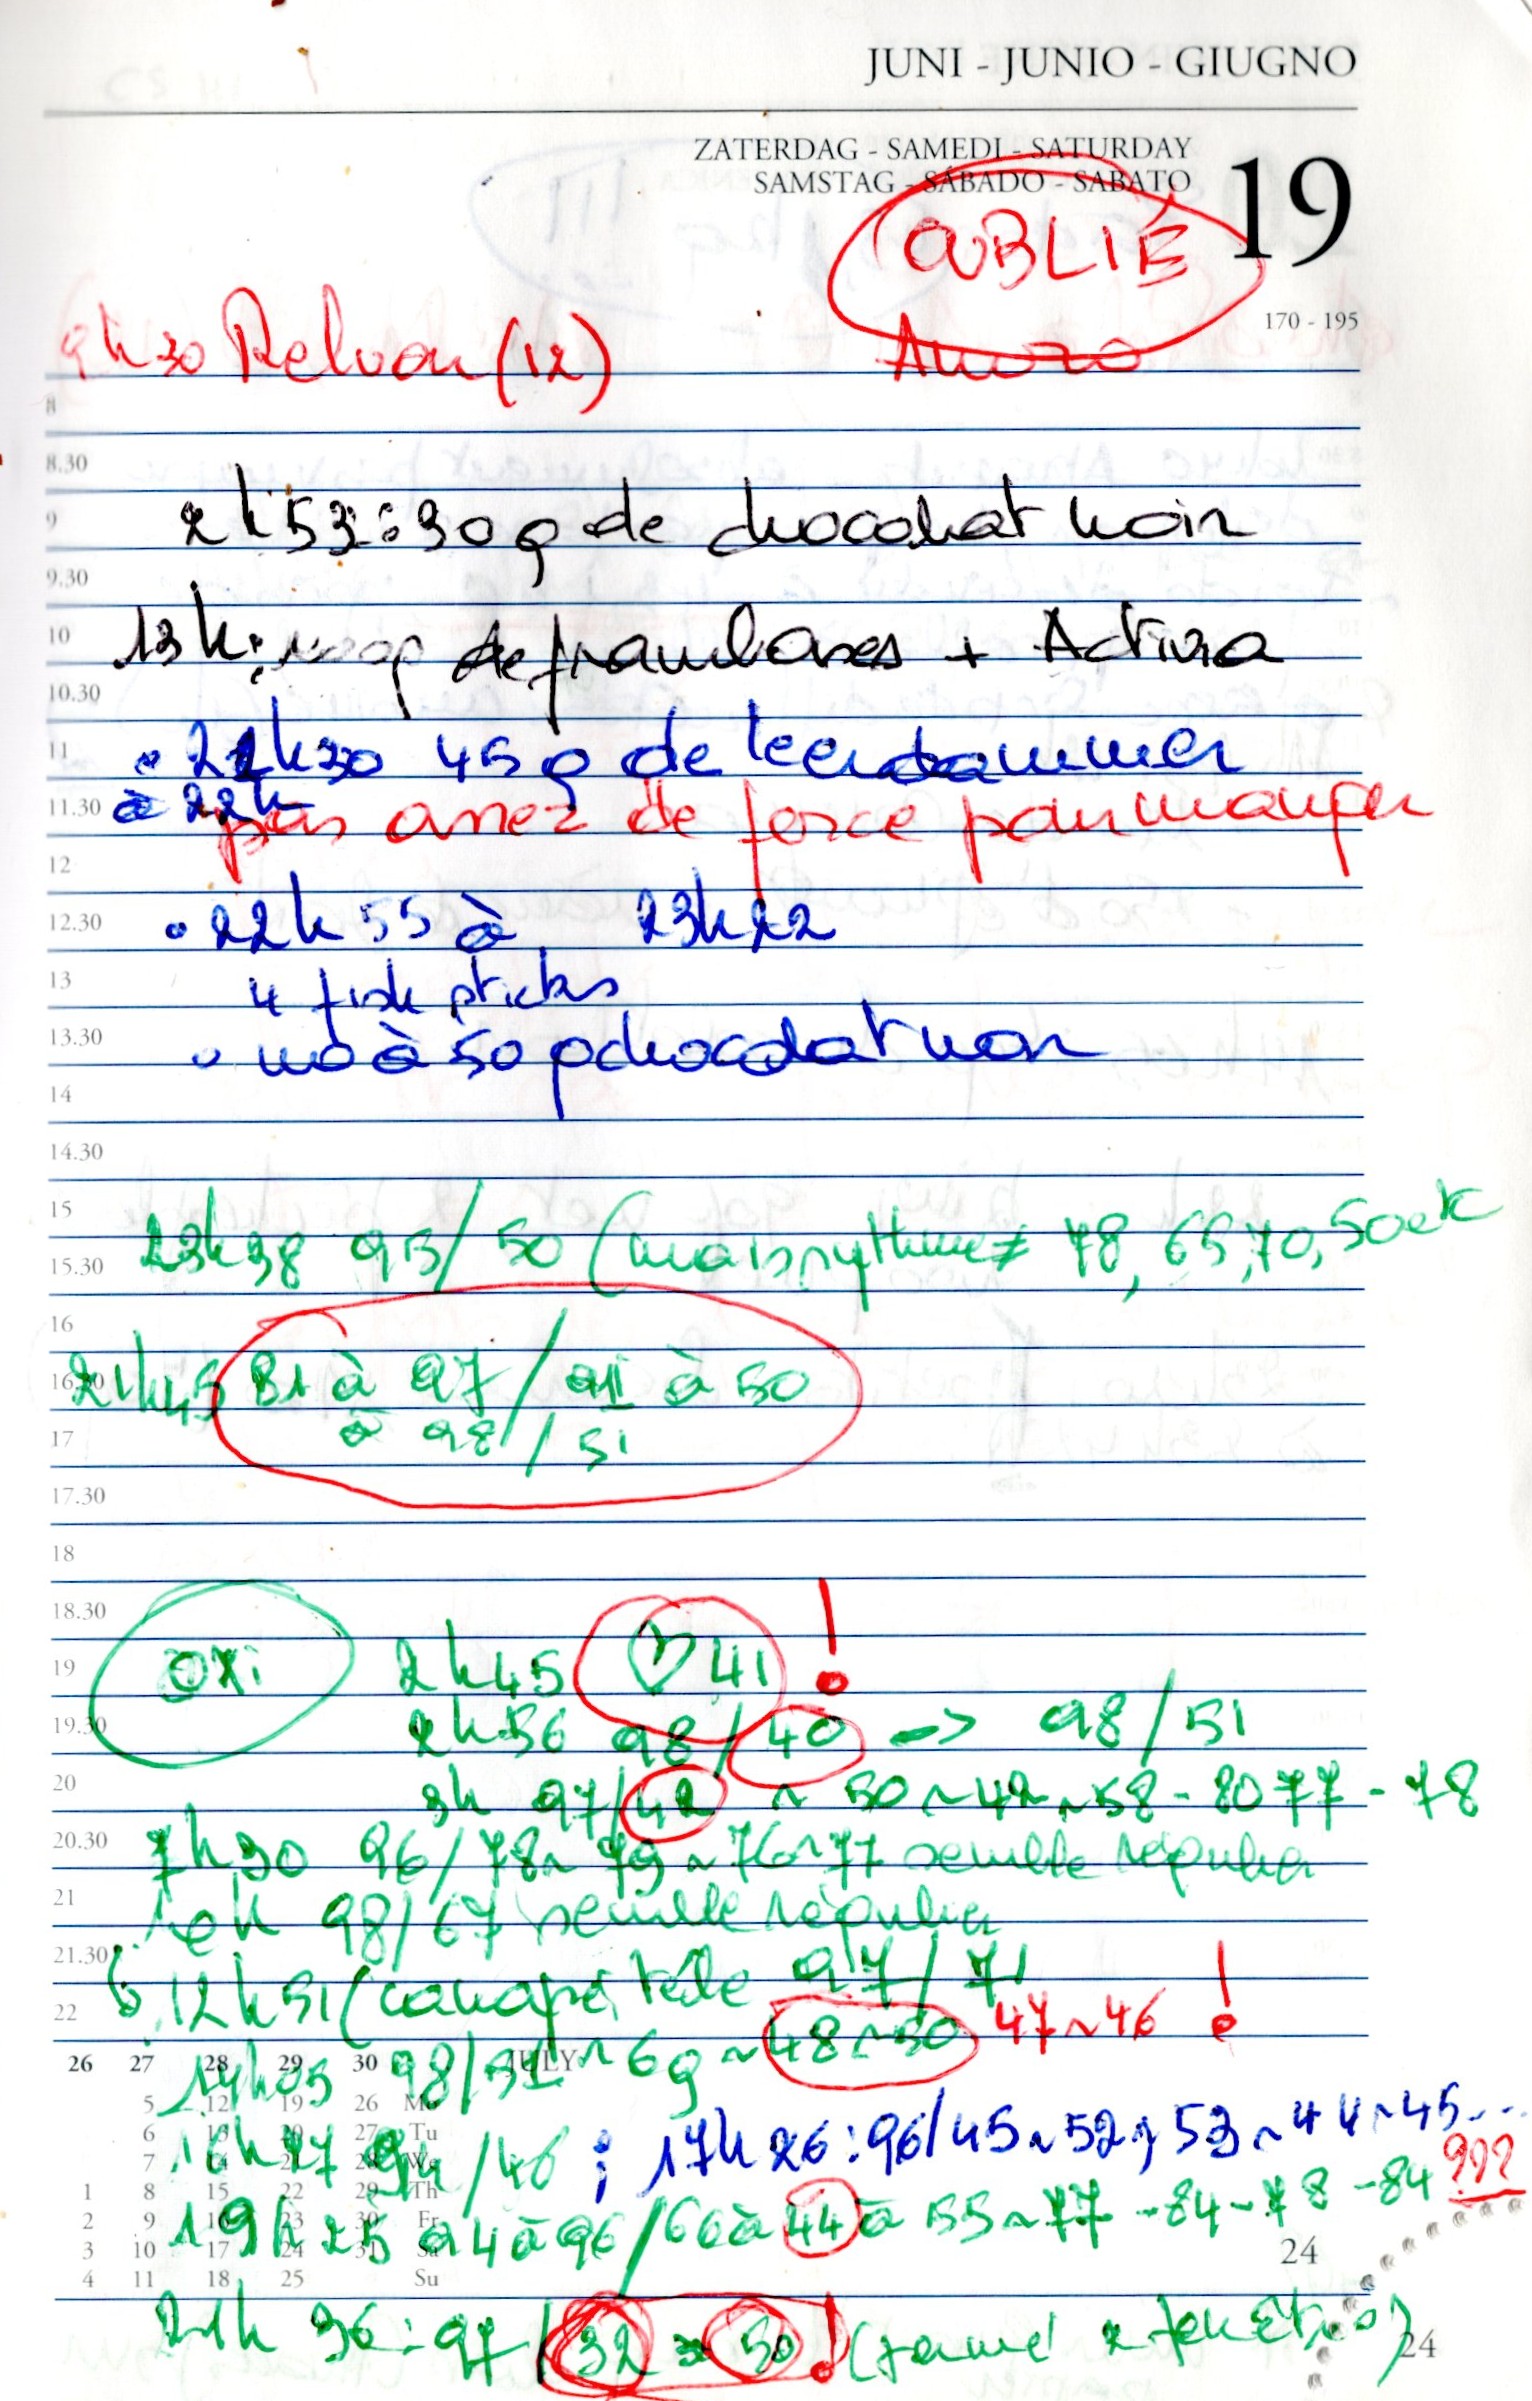 JUNI - JUNIO - GIUGNO
ZATERDAG - SAMEDI - SATURDAY
SAMSTAG - SÁBADO - SABATO
19
OUBLIÉ
170 - 195
9h30 Relvon (12)
8
8.30
2h53 : 30 g de chocolat noir
9
9.30
13h : de framboises + Activia
10
10.30
• 22h30 45 g de leerdammer
11
à 22h
11.30
pas assez de force pour manger
12
• 22h55 à 23h22
12.30
4 fish sticks
13
• 40 à 50 g chocolat noir
13.30
14
14.30
15
23h38 95/50 (mais rythme ≠ 78, 65, 70, 50 etc
15.30
16
21h45 91 à 97 / à 50
16.30
à 98 / 51
17
17.30
18
18.30
OXI 2h45 ♡ 41 !
19
2h56 98/40 => 98/51
19.30
3h 97/42 ~ 50 ~ 42 ~ 58 - 80 77 - 78
20
7h30 96/78 ~ 79 ~ 76 ~ 77 semble régulier
20.30
10h 98/67 semble régulier
21
21.30
12h51 (canapé, télé 97/71
22
14h05 98/51 ~ 69 ~ 48 ~ 50 47 ~ 46 !
26 27 28 29 30 JULY
5 12 19 26 Mo
6 13 20 27 Tu
7 14 21 28 We
16h27 94/46 ; 17h26 : 96/45 ~ 52 ~ 53 ~ 44 ~ 45...
1 8 15 22 29 Th
2 9 16 23 30 Fr
19h25 94 à 96/66 à 44 à 55 ~ 77 - 84 - 78 - 84 ???
3 10 17 24 31 Sa
4 11 18 25 Su
24
21h36 : 97/32 => 50 ! (fermé 2 fenêtres)
24